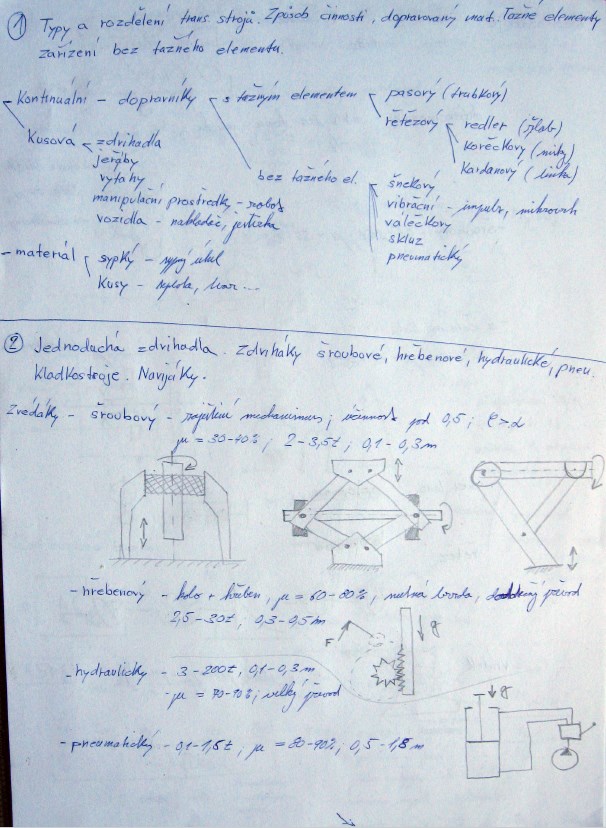 ① Typy a rozdělení trans. strojů. Způsob činnosti, dopravovaný mat. Tažné elementy
zařízení bez tažného elementu.
- kontinuální - dopravníky - s tažným elementem - pasový (trubkový)
řetězový - redler (žlab)
korečkový
kardanový
Kusová - zdvihadla
jeřáby
výtahy
manipulační prostředky - robot
vozidla - nakladač,
bez tažného el. šnekový
vibrační - impulz,
válečkový
skluz
pneumatický
- materiál - sypký - sypný úhel
kusy - teplota, tvar...
② Jednoduchá zdvihadla. Zdviháky šroubové, hřebenové, hydraulické, pneu.
kladkostroje. Navijáky.
Zvedáky - šroubový - mechanismus; účinnost pod 0,5; ρ>α
μ = 30-40%; 2-3,5t; 0,1-0,3m
- hřebenový - kolo + hřeben, μ = 60-80%, nutná brzda, převod
2,5-30t, 0,3-0,5m
F
g
- hydraulický - 3-200t, 0,1-0,3m
- μ = 70-90%; velký převod
g
- pneumatický - 0,1-1,5t, μ = 80-90%; 0,5-1,8m